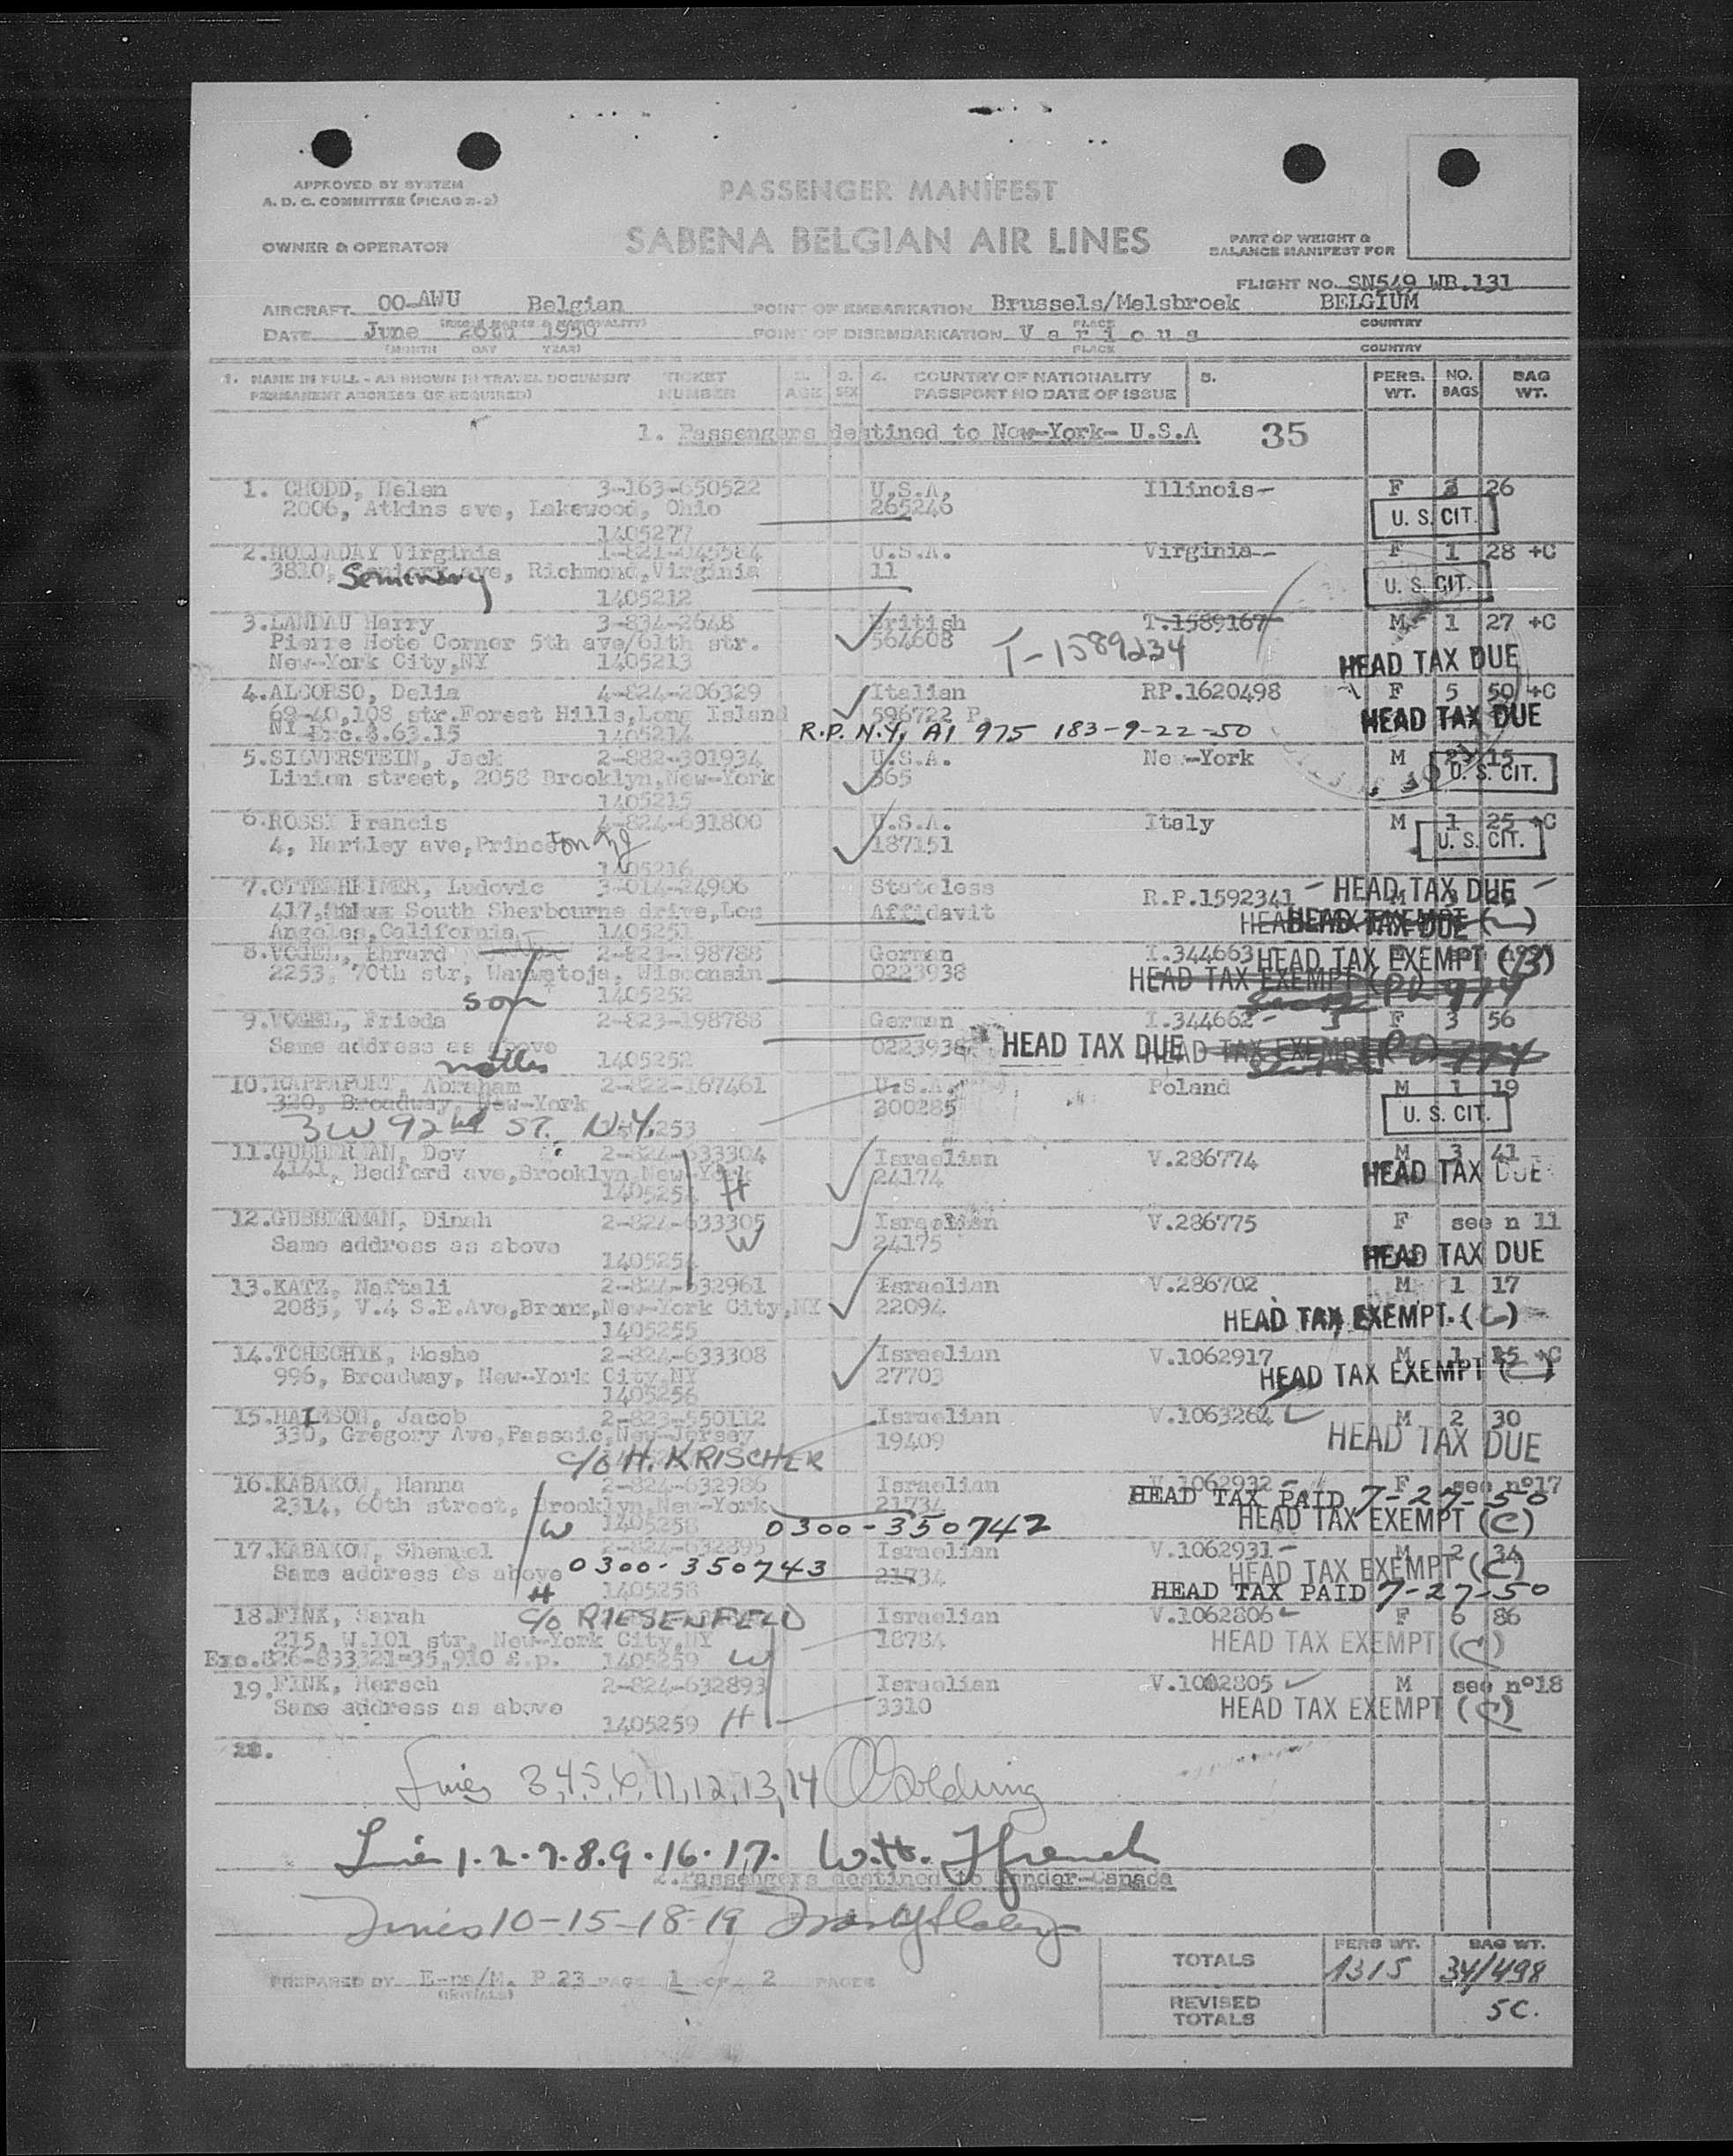 APPROVED BY SYSTEM
A. D. C. COMMITTEE (PICAO 2-2)
OWNER & OPERATOR
PASSENGER MANIFEST
SABENA BELGIAN AIR LINES
PART OF WEIGHT &
BALANCE MANIFEST FOR
FLIGHT NO. SN549 WB.131
AIRCRAFT OO-AWU Belgian POINT OF EMBARKATION Brussels/Melsbroek BELGIUM
PLACE COUNTRY
DATE June 20th 1950 POINT OF DISEMBARKATION Various
(MONTH DAY YEAR) PLACE COUNTRY
1. NAME IN FULL - AS SHOWN IN TRAVEL DOCUMENT TICKET 2. 3. 4. COUNTRY OF NATIONALITY 5. PERS. NO. BAG
PERMANENT ADDRESS (IF REQUIRED) NUMBER AGE SEX PASSPORT NO DATE OF ISSUE WT. BAGS WT.
1. Passengers destined to New-York- U.S.A 35
1. CHODD, Helen 3-163-650522 U.S.A. Illinois- F 3 26
2006, Atkins ave, Lakewood, Ohio 265246 U. S. CIT.
1405277
2.HOLLADAY Virginia 1-821-045584 U.S.A. Virginia-- F 1 28 +C
3810, Seminary ave, Richmond,Virginia 11 U. S. CIT.
1405212
3.LANDAU Harry 3-834-2648 British T.1589167 M 1 27 +C
Pierre Hote Corner 5th ave/61th str. 564608 T-1589234
New-York City,NY 1405213 HEAD TAX DUE
4.ALCORSO, Delia 4-824-206329 Italian RP.1620498 F 5 50 +C
69-40,108 str.Forest Hills,Long Island 596722 P HEAD TAX DUE
NY Exc.$.63.15 1405214 R.P. N.Y. A1 975 183-9-22-50
5.SILVERSTEIN, Jack 2-882-301934 U.S.A. New-York M 2 15
Linion street, 2058 Brooklyn,New-York 365 U. S. CIT.
1405215
6.ROSSI Francis 4-824-631800 U.S.A. Italy M 1 25 +C
4, Hartley ave,Princeton NJ 187151 U. S. CIT.
1405216
7.OTTENHEIMER, Ludovic 3-014-24906 Stateless R.P.1592341 - HEAD TAX DUE -
417, South Sherbourne drive,Los Affidavit
Angeles,California 1405251
8.VOGEL, Ehrard 2-823-198788 German I.344663 HEAD TAX EXEMPT
2253, 70th str, Wauwatoja, Wisconsin 0223938 HEAD TAX EXEMPT
son 1405252
9.VOGEL, Frieda 2-823-198788 German I.344662- F 3 56
Same address as above 0223938 HEAD TAX DUE HEAD TAX EXEMPT
mother 1405252
10.RAPPAPORT, Abraham 2-822-167461 U.S.A. Poland M 1 19
320, Broadway, New-York 200285 U. S. CIT.
3 W 92nd ST. N.Y. 1405253
11.GUBBERMAN, Dov 2-824-633304 Israelian V.286774 M 3 41
4141, Bedford ave,Brooklyn,New-York 24174 HEAD TAX DUE
1405254 H
12.GUBBERMAN, Dinah 2-824-633305 Israelian V.286775 F see n 11
Same address as above W 24175 HEAD TAX DUE
1405254
13.KATZ, Naftali 2-824-632961 Israelian V.286702 M 1 17
2085, V.4 S.E.Ave,Bronx,New-York City,NY 22094 HEAD TAX EXEMPT. (C)
1405255
14.TCHECHIK, Moshe 2-824-633308 Israelian V.1062917 M 1 15 +C
996, Broadway, New-York City,NY 27703 HEAD TAX EXEMPT (C)
1405256
15.HAIMSON, Jacob 2-823-550112 Israelian V.1063264 M 2 30
330, Gregory Ave,Passaic,New-Jersey 19409 HEAD TAX DUE
c/o H. KRISCHER
16.KABAKOW, Hanna 2-824-632986 Israelian V.1062932 F see nº17
2314, 60th street, Brooklyn,New-York 21734 HEAD TAX PAID 7-27-50
W 1405258 0300-350742 HEAD TAX EXEMPT (C)
17.KABAKOW, Shemuel 2-824-632895 Israelian V.1062931- M 2 34
Same address as above 0300-350743 21734 HEAD TAX EXEMPT (C)
H 1405258 HEAD TAX PAID 7-27-50
18.FINK, Sarah c/o RIESENFELD Israelian V.1062806 F 6 86
215, W.101 str, New-York City,NY 18784 HEAD TAX EXEMPT (C)
Exc.826-833321=35,910 £.p. 1405259 W
19.FINK, Hersch 2-824-632893 Israelian V.1062805 M see nº18
Same address as above 3310 HEAD TAX EXEMPT (C)
1405259 H
Lines 3,4,5,6,11,12,13,14 Golding
Lines 1.2.7.8.9.16.17. W.H. French
2.Passengers destined to Gander-Canada
Lines 10-15-18-19
PREPARED BY E-ps/M. P.23 PAGE 1 OF 2 PAGES
(INITIALS)
PERS WT. BAG WT.
TOTALS 1315 34/498
REVISED TOTALS 5C.